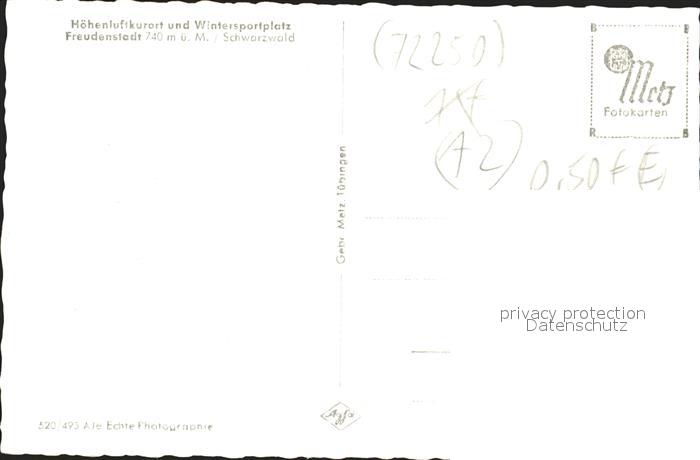 Höhenluftkurort und Wintersportplatz
Freudenstadt 740 m ü. M. / Schwarzwald
(72250)
(A2)
0,50 €
B
Metz
Fotokarten
R B
Gebr. Metz, Tübingen
privacy protection
Datenschutz
Agfa
520/493 Alle Echte Photographie